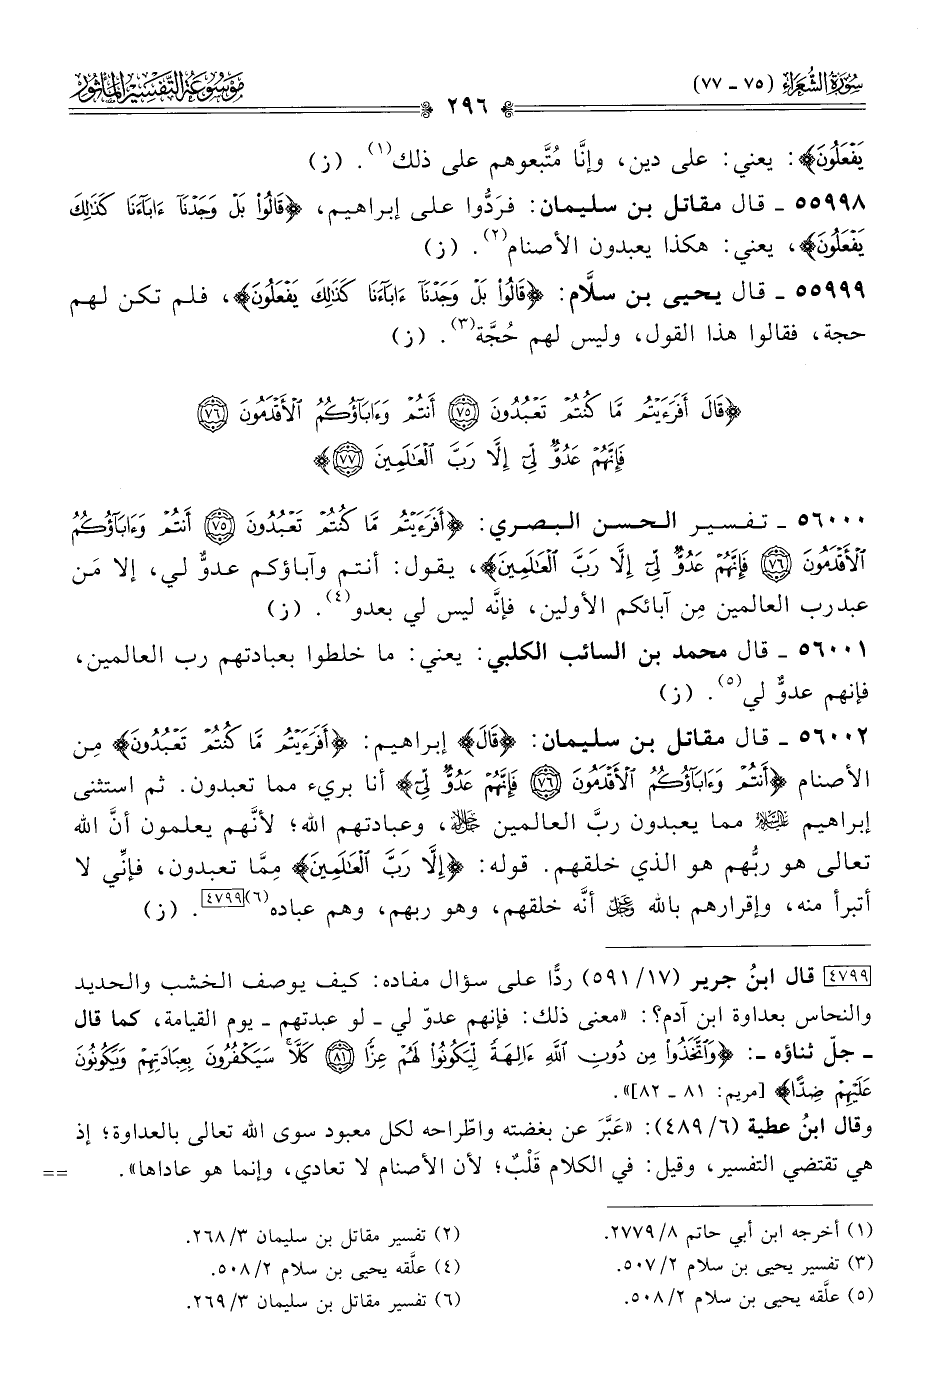 سُورَةُ الشُّعَرَاءِ (٧٥ - ٧٧)
٢٩٦
مَوْسُوعَةُ التَّفْسِيرِ المَأْثُورِ
يَفْعَلُونَ﴾: يعني: على دين، وإنَّا مُتَّبعوهم على ذلك(١). (ز)
٥٥٩٩٨ - قال مقاتل بن سليمان: فردُّوا على إبراهيم، ﴿قَالُوا۟ بَلْ وَجَدْنَآ ءَابَآءَنَا كَذَٰلِكَ
يَفْعَلُونَ﴾، يعني: هكذا يعبدون الأصنام(٢). (ز)
٥٥٩٩٩ - قال يحيى بن سلَّام: ﴿قَالُوا۟ بَلْ وَجَدْنَآ ءَابَآءَنَا كَذَٰلِكَ يَفْعَلُونَ﴾، فلم تكن لهم
حجة، فقالوا هذا القول، وليس لهم حُجَّة(٣). (ز)
﴿قَالَ أَفَرَءَيْتُم مَّا كُنتُمْ تَعْبُدُونَ ٧٥ أَنتُمْ وَءَابَآؤُكُمُ ٱلْأَقْدَمُونَ ٧٦
فَإِنَّهُمْ عَدُوٌّ لِّىٓ إِلَّا رَبَّ ٱلْعَٰلَمِينَ ٧٧﴾
٥٦٠٠٠ - تفسير الحسن البصري: ﴿أَفَرَءَيْتُم مَّا كُنتُمْ تَعْبُدُونَ ٧٥ أَنتُمْ وَءَابَآؤُكُمُ
ٱلْأَقْدَمُونَ ٧٦ فَإِنَّهُمْ عَدُوٌّ لِّىٓ إِلَّا رَبَّ ٱلْعَٰلَمِينَ﴾، يقول: أنتم وآباؤكم عدوٌّ لي، إلا مَن
عبد رب العالمين مِن آبائكم الأولين، فإنَّه ليس لي بعدو(٤). (ز)
٥٦٠٠١ - قال محمد بن السائب الكلبي: يعني: ما خلطوا بعبادتهم رب العالمين،
فإنهم عدوٌّ لي(٥). (ز)
٥٦٠٠٢ - قال مقاتل بن سليمان: ﴿قَالَ﴾ إبراهيم: ﴿أَفَرَءَيْتُم مَّا كُنتُمْ تَعْبُدُونَ﴾ مِن
الأصنام ﴿أَنتُمْ وَءَابَآؤُكُمُ ٱلْأَقْدَمُونَ ٧٦ فَإِنَّهُمْ عَدُوٌّ لِّىٓ﴾ أنا بريء مما تعبدون. ثم استثنى
إبراهيم عليه السلام مما يعبدون ربَّ العالمين جل جلاله، وعبادتهم الله؛ لأنَّهم يعلمون أنَّ الله
تعالى هو ربُّهم هو الذي خلقهم. قوله: ﴿إِلَّا رَبَّ ٱلْعَٰلَمِينَ﴾ مِمَّا تعبدون، فإنِّي لا
أتبرأ منه، وإقرارهم بالله عز وجل أنَّه خلقهم، وهو ربهم، وهم عباده(٦)[٤٧٩٩]. (ز)
[٤٧٩٩] قال ابنُ جرير (١٧/ ٥٩١) ردًّا على سؤال مفاده: كيف يوصف الخشب والحديد
والنحاس بعداوة ابن آدم؟: «معنى ذلك: فإنهم عدوّ لي - لو عبدتهم - يوم القيامة، كما قال
- جلّ ثناؤه -: ﴿وَٱتَّخَذُوا۟ مِن دُونِ ٱللَّهِ ءَالِهَةً لِّيَكُونُوا۟ لَهُمْ عِزًّا ٨١ كَلَّا ۚ سَيَكْفُرُونَ بِعِبَادَتِهِمْ وَيَكُونُونَ
عَلَيْهِمْ ضِدًّا﴾ [مريم: ٨١ - ٨٢]».
وقال ابنُ عطية (٦/ ٤٨٩): «عَبَّرَ عن بغضته واطّراحه لكل معبود سوى الله تعالى بالعداوة؛ إذ
هي تقتضي التفسير، وقيل: في الكلام قَلْبٌ؛ لأن الأصنام لا تعادي، وإنما هو عاداها». ==
(١) أخرجه ابن أبي حاتم ٨/ ٢٧٧٩.
(٢) تفسير مقاتل بن سليمان ٣/ ٢٦٨.
(٣) تفسير يحيى بن سلام ٢/ ٥٠٧.
(٤) علَّقه يحيى بن سلام ٢/ ٥٠٨.
(٥) علَّقه يحيى بن سلام ٢/ ٥٠٨.
(٦) تفسير مقاتل بن سليمان ٣/ ٢٦٩.